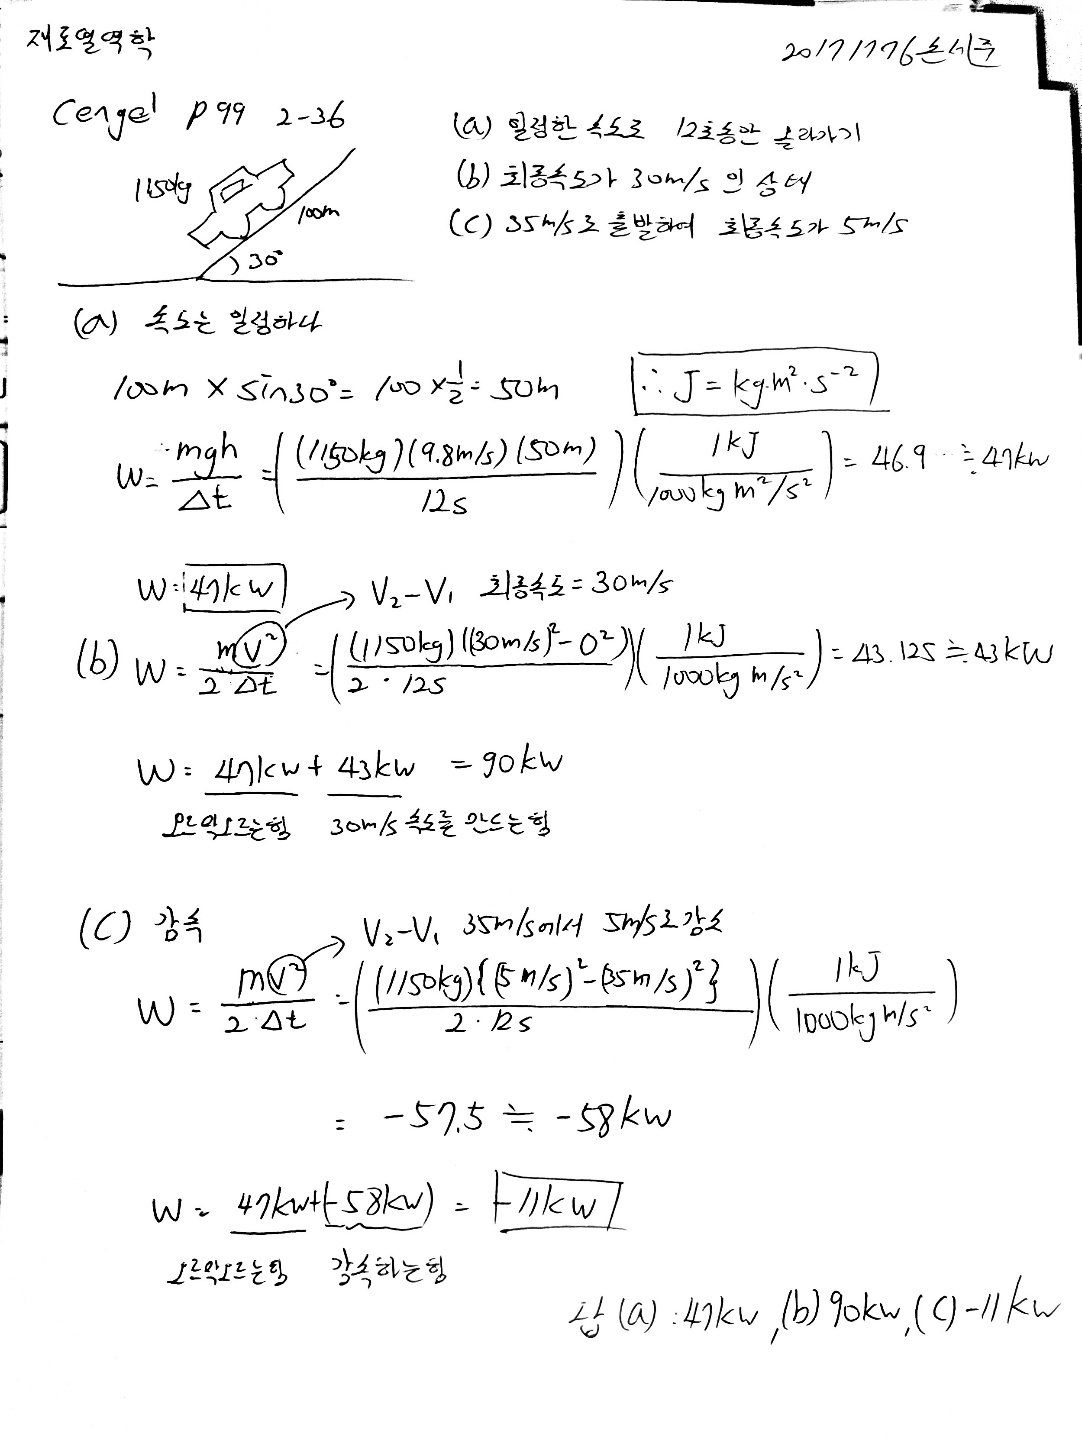 재료열역학
20171776 손서주
Cengel P 99 2-36
1150kg
100m
30°
(a) 일정한 속도로 12초동안 올라가기
(b) 최종속도가 30m/s 인 상태
(C) 35m/s로 출발하여 최종속도가 5m/s
(a) 속도는 일정하다
100m × sin30° = 100 × 1/2 = 50m
∴ J = kg·m²·s⁻²
W = mgh/Δt = ((1150kg)(9.8m/s)(50m)/12s)(1kJ/1000kg m²/s²) = 46.9 ≒ 47kW
W = 47kW
V₂-V₁ 최종속도 = 30m/s
(b) W = mV²/2·Δt = ((1150kg)((30m/s)²-0²)/2·12s)(1kJ/1000kg m/s²) = 43.125 ≒ 43kW
W = 47kW + 43kW = 90kW
오르막오르는힘 30m/s 속도를 만드는힘
(C) 감속
V₂-V₁ 35m/s에서 5m/s로 감소
W = mV²/2·Δt = ((1150kg){(5m/s)²-(35m/s)²}/2·12s)(1kJ/1000kg m/s²)
= -57.5 ≒ -58kW
W = 47kW+(-58kW) = -11kW
오르막오르는힘 감속하는힘
답 (a) : 47kW, (b) 90kW, (C) -11kW